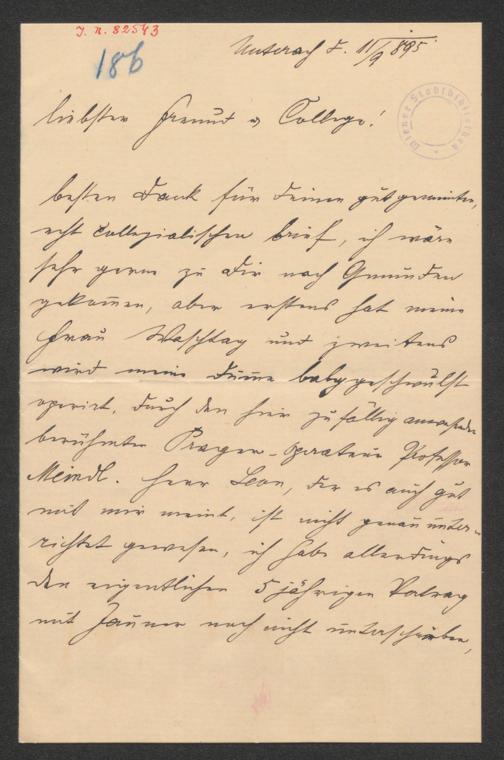 J. N. 82543
186
Unterach d. 11/9 895
Wiener Stadtbibliothek
liebster Freund & College!
besten Dank für deinen gutgemeinten,
echt collegialischen brief, ich wäre
sehr gerne zu dir nach Gmunden
gekom̅en, aber erstens hat meine
Frau Waschtag und zweitens
wird meine dum̅e balggeschwulst
operirt, durch den hier zufällig anwesenden
berühmten Prager-operateur Professor
Meindl. Herr Leon, der es auch gut
mit mir meint, ist nicht genau unter-
richtet gewesen, ich habe allerdings
den eigentlichen 5 jährigen Vertrag
mit Jauner noch nicht unterschrieben,